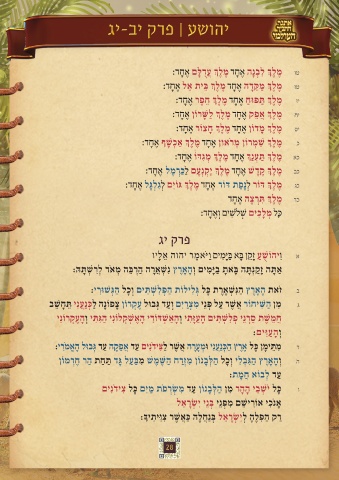 יהושע | פרק יב-יג
טו מֶלֶךְ לִבְנָה אֶחָד מֶלֶךְ עֲדֻלָּם אֶחָד:
טז מֶלֶךְ מַקֵּדָה אֶחָד מֶלֶךְ בֵּית אֵל אֶחָד:
יז מֶלֶךְ תַּפּוּחַ אֶחָד מֶלֶךְ חֵפֶר אֶחָד:
יח מֶלֶךְ אֲפֵק אֶחָד מֶלֶךְ לַשָּׁרוֹן אֶחָד:
יט מֶלֶךְ מָדוֹן אֶחָד מֶלֶךְ חָצוֹר אֶחָד:
כ מֶלֶךְ שִׁמְרוֹן מְראוֹן אֶחָד מֶלֶךְ אַכְשָׁף אֶחָד:
כא מֶלֶךְ תַּעְנַךְ אֶחָד מֶלֶךְ מְגִדּוֹ אֶחָד:
כב מֶלֶךְ קֶדֶשׁ אֶחָד מֶלֶךְ יָקְנְעָם לַכַּרְמֶל אֶחָד:
כג מֶלֶךְ דּוֹר לְנָפַת דּוֹר אֶחָד מֶלֶךְ גּוֹיִם לְגִלְגָּל אֶחָד:
כד מֶלֶךְ תִּרְצָה אֶחָד
כָּל מְלָכִים שְׁלֹשִׁים וְאֶחָד:
פרק יג
א וִיהוֹשֻׁעַ זָקֵן בָּא בַּיָּמִים וַיֹּאמֶר יהוה אֵלָיו
אַתָּה זָקַנְתָּה בָּאתָ בַיָּמִים וְהָאָרֶץ נִשְׁאֲרָה הַרְבֵּה מְאֹד לְרִשְׁתָּהּ:
ב זֹאת הָאָרֶץ הַנִּשְׁאָרֶת כָּל גְּלִילוֹת הַפְּלִשְׁתִּים וְכָל הַגְּשׁוּרִי:
ג מִן הַשִּׁיחוֹר אֲשֶׁר עַל פְּנֵי מִצְרַיִם וְעַד גְּבוּל עֶקְרוֹן צָפוֹנָה לַכְּנַעֲנִי תֵּחָשֵׁב
חֲמֵשֶׁת סַרְנֵי פְלִשְׁתִּים הָעַזָּתִי וְהָאַשְׁדּוֹדִי הָאֶשְׁקְלוֹנִי הַגִּתִּי וְהָעֶקְרוֹנִי
וְהָעַוִּים:
ד מִתֵּימָן כָּל אֶרֶץ הַכְּנַעֲנִי וּמְעָרָה אֲשֶׁר לַצִּידֹנִים עַד אֲפֵקָה עַד גְּבוּל הָאֱמֹרִי:
ה וְהָאָרֶץ הַגִּבְלִי וְכָל הַלְּבָנוֹן מִזְרַח הַשֶּׁמֶשׁ מִבַּעַל גָּד תַּחַת הַר חֶרְמוֹן
עַד לְבוֹא חֲמָת:
ו כָּל יֹשְׁבֵי הָהָר מִן הַלְּבָנוֹן עַד מִשְׂרְפֹת מַיִם כָּל צִידֹנִים
אָנֹכִי אוֹרִישֵׁם מִפְּנֵי בְּנֵי יִשְׂרָאֵל
רַק הַפִּלֶהָ לְיִשְׂרָאֵל בְּנַחֲלָה כַּאֲשֶׁר צִוִּיתִיךָ:
28